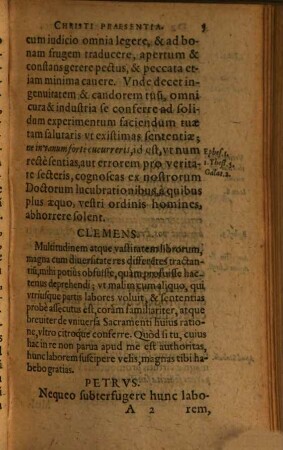 CHRISTI PRAESENTIA. 5
cum iudicio omnia legere, & ad bo-
nam frugem traducere, apertum &
constans gerere pectus, & peccata et-
iam minima cauere. Vnde decet in-
genuitatem & candorem tuũ, omni
cura & industria se conferre ad soli-
dum experimentum faciendum tuæ
tam salutaris vt existimas sententiæ;
ne in vanum forte cucurreris, id est, vt num
recte sentias, aut errorem pro verita-
te secteris, cognoscas ex nostrorum
Doctorum lucubrationibus, à quibus
plus æquo, vestri ordinis homines,
abhorrere solent.
Ephes. 1.
1. Thess. 3.
Galat. 2.
CLEMENS.
Multitudinem atque vastitatem librorum,
magna cum diuersitate res differentes tractan-
tiũ, mihi potiùs obfuisse, quàm profuisse hac-
tenus deprehendi; vt malim cum aliquo, qui
vtriusque partis labores voluit, & sententias
probè assecutus est, coràm familiariter, atque
breuiter de vniuersa Sacramenti huius ratio-
ne, vltro citroque conferre. Quod si tu, cuius
hac in re non parua apud me est authoritas,
hunc laborem suscipere velis, magnas tibi ha-
bebo gratias.
PETRVS.
Nequeo subterfugere hunc labo-
A 2 rem,